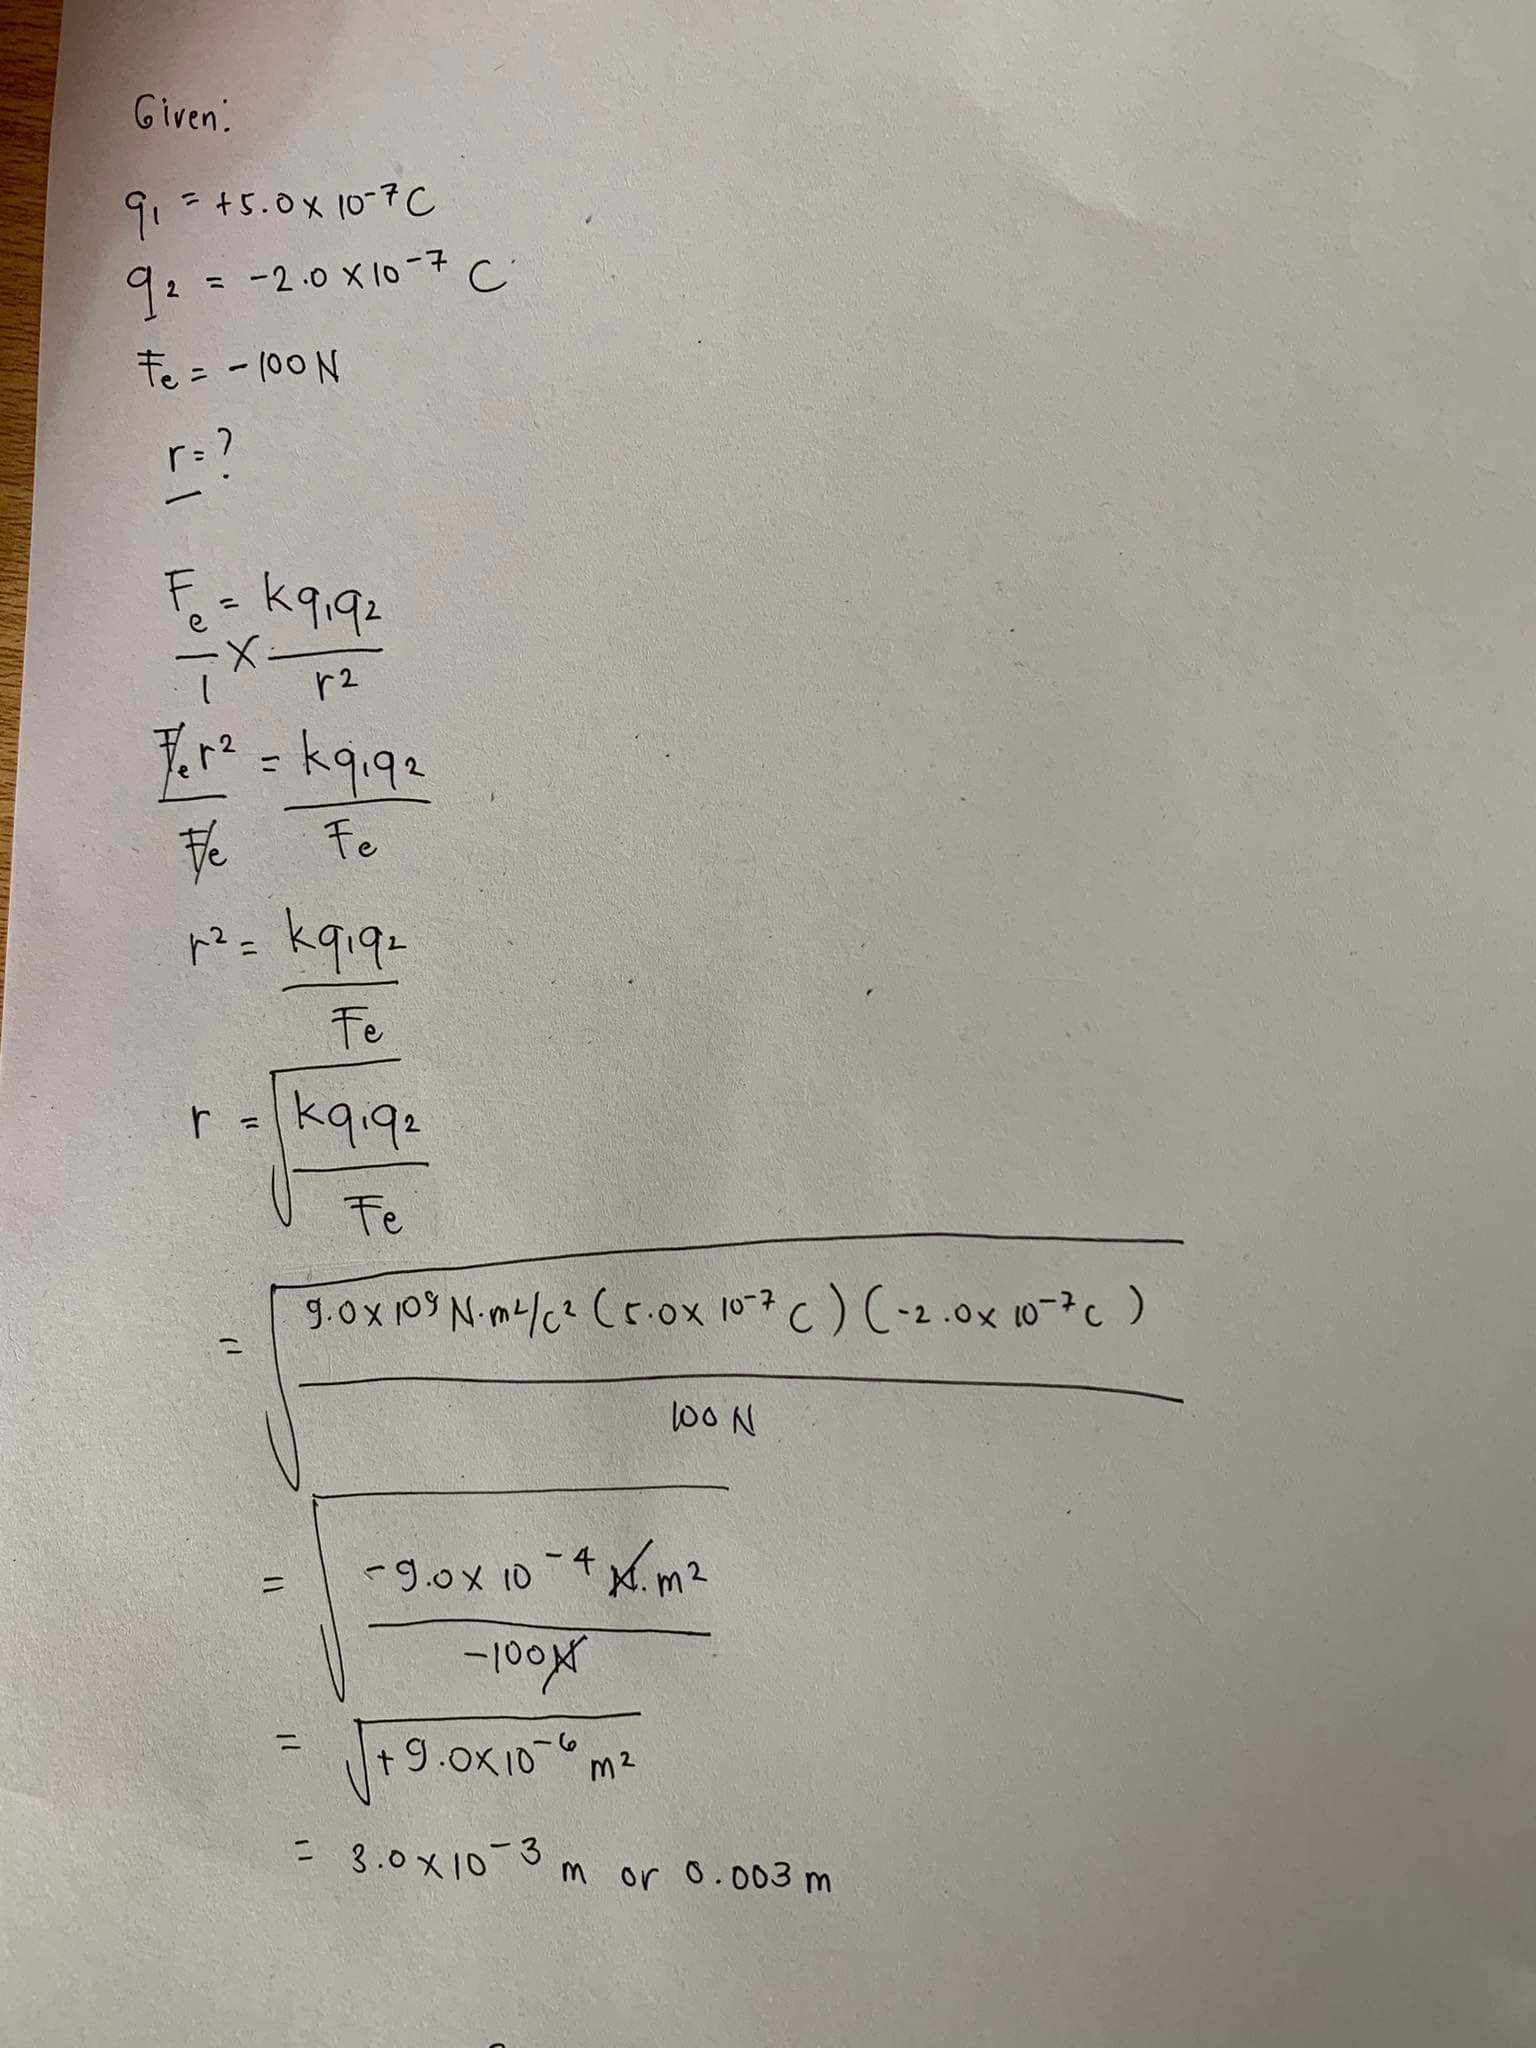 Given:
q₁ = +5.0 x 10⁻⁷ C
q₂ = -2.0 x 10⁻⁷ C
Fe = -100 N
r = ?
Fe/1 = kq₁q₂/r²
X
Fe r²/Fe = kq₁q₂/Fe
r² = kq₁q₂/Fe
r = √(kq₁q₂/Fe)
= √(9.0 x 10⁹ N·m²/c² (5.0 x 10⁻⁷ C) (-2.0 x 10⁻⁷ C)/100 N)
= √(-9.0 x 10⁻⁴ N·m²/-100 N)
= √(+9.0 x 10⁻⁶ m²)
= 3.0 x 10⁻³ m or 0.003 m